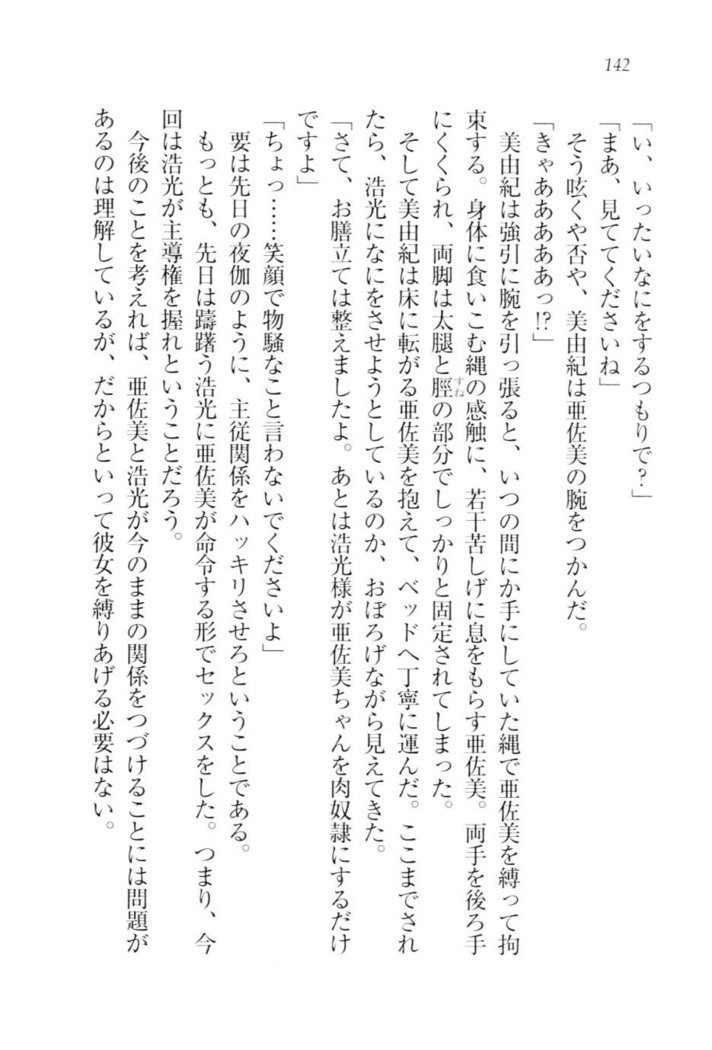 142
「い、いったいなにをするつもりで？」
「まあ、見ててくださいね」
そう呟くや否や、美由紀は亜佐美の腕をつかんだ。
「きゃああああぁっ!?」
美由紀は強引に腕を引っ張ると、いつの間にか手にしていた縄で亜佐美を縛って拘
束する。身体に食いこむ縄の感触に、若干苦しげに息をもらす亜佐美。両手を後ろ手
にくくられ、両脚は太腿と脛すねの部分でしっかりと固定されてしまった。
そして美由紀は床に転がる亜佐美を抱えて、ベッドへ丁寧に運んだ。ここまでされ
たら、浩光になにをさせようとしているのか、おぼろげながら見えてきた。
「さて、お膳立ては整えましたよ。あとは浩光様が亜佐美ちゃんを肉奴隷にするだけ
ですよ」
「ちょっ……笑顔で物騒なこと言わないでくださいよ」
要は先日の夜伽のように、主従関係をハッキリさせろということである。
もっとも、先日は躊躇う浩光に亜佐美が命令する形でセックスをした。つまり、今
回は浩光が主導権を握れということだろう。
今後のことを考えれば、亜佐美と浩光が今のままの関係をつづけることには問題が
あるのは理解しているが、だからといって彼女を縛りあげる必要はない。